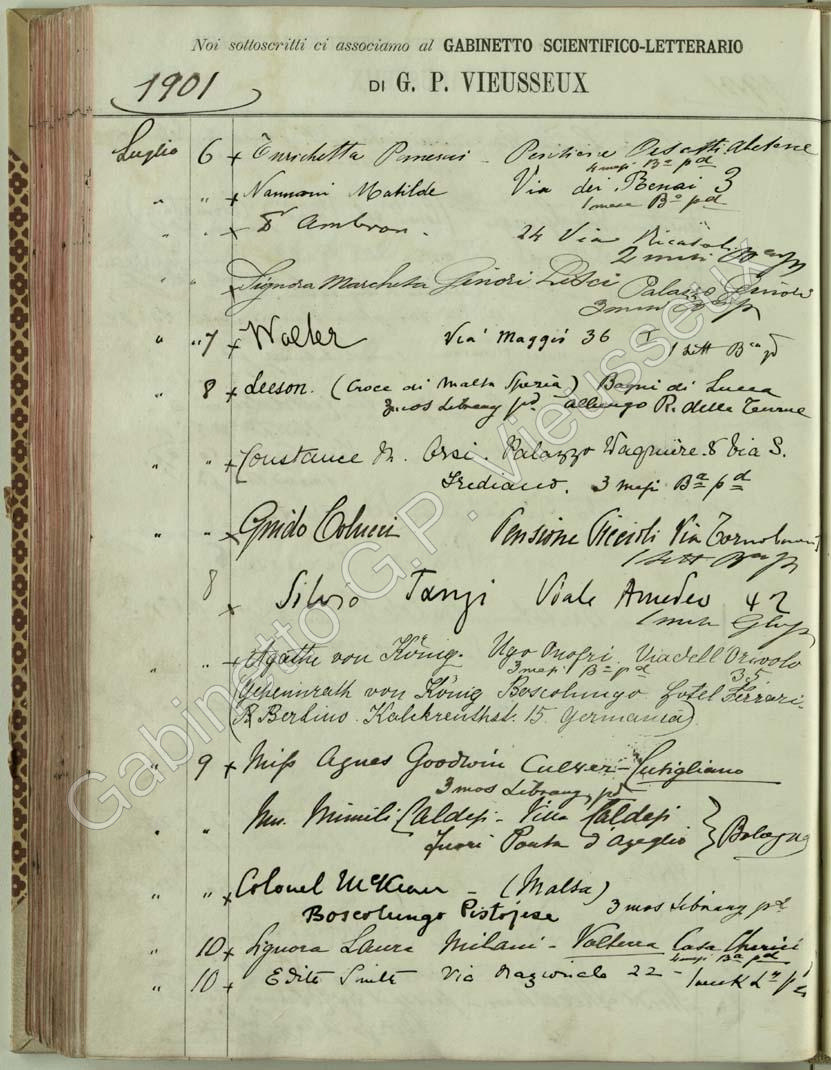 Noi sottoscritti ci associamo al GABINETTO SCIENTIFICO-LETTERARIO
1901
DI G. P. VIEUSSEUX
Luglio 6 x Enrichetta
4 mesi Bª pd
" " x Nannoni Matilde Via dei Renai 3
1 mese Bª pd
" " x Dr Ambron. 24 Via Ricasoli
2 mesi
" " x Signora Marchesa Ginori Lisci Palazzo Ginori
3 mesi
" " 7 x Walter Via Maggio 36
1 sett Bca pd
" 8 x Leeson. (Croce di Malta Spezia) Bagni di Lucca
3 mos Library pd albergo R. delle Terme
" " x Constance M. Orsi. Palazzo Wagnière. 8 Via S.
Frediano. 3 mesi Bª pd
" " x Guido Colucci Pensione Piccioli Via Tornabuoni
1 sett
8 x Silvio Tanzi Viale Amedeo 42
1 mese
" " x Agathe von König. Ugo Onofri. Via dell Orivolo
3 mesi Bª pd 35
(Geheimrath von König Boscolungo. Hotel Ferrari.
Berlino. Kalckreuthst. 15. Germania)
" 9 x Miss Agnes Goodwin Culver - Cutigliano
3 mos Library pd
" " Mimili Caldesi - Villa Caldesi
fuori Porta d'Azeglio } Bologna
" " x Colonel McKean - (Malta)
Boscolungo Pistojese 3 mos Library pd
" 10 x Signora Laura Milani - Volterra Casa
4 mesi Bª pd
" 10 x Edite Smith Via Nazionale 22 - 1 week
Gabinetto G.P. Vieusseux